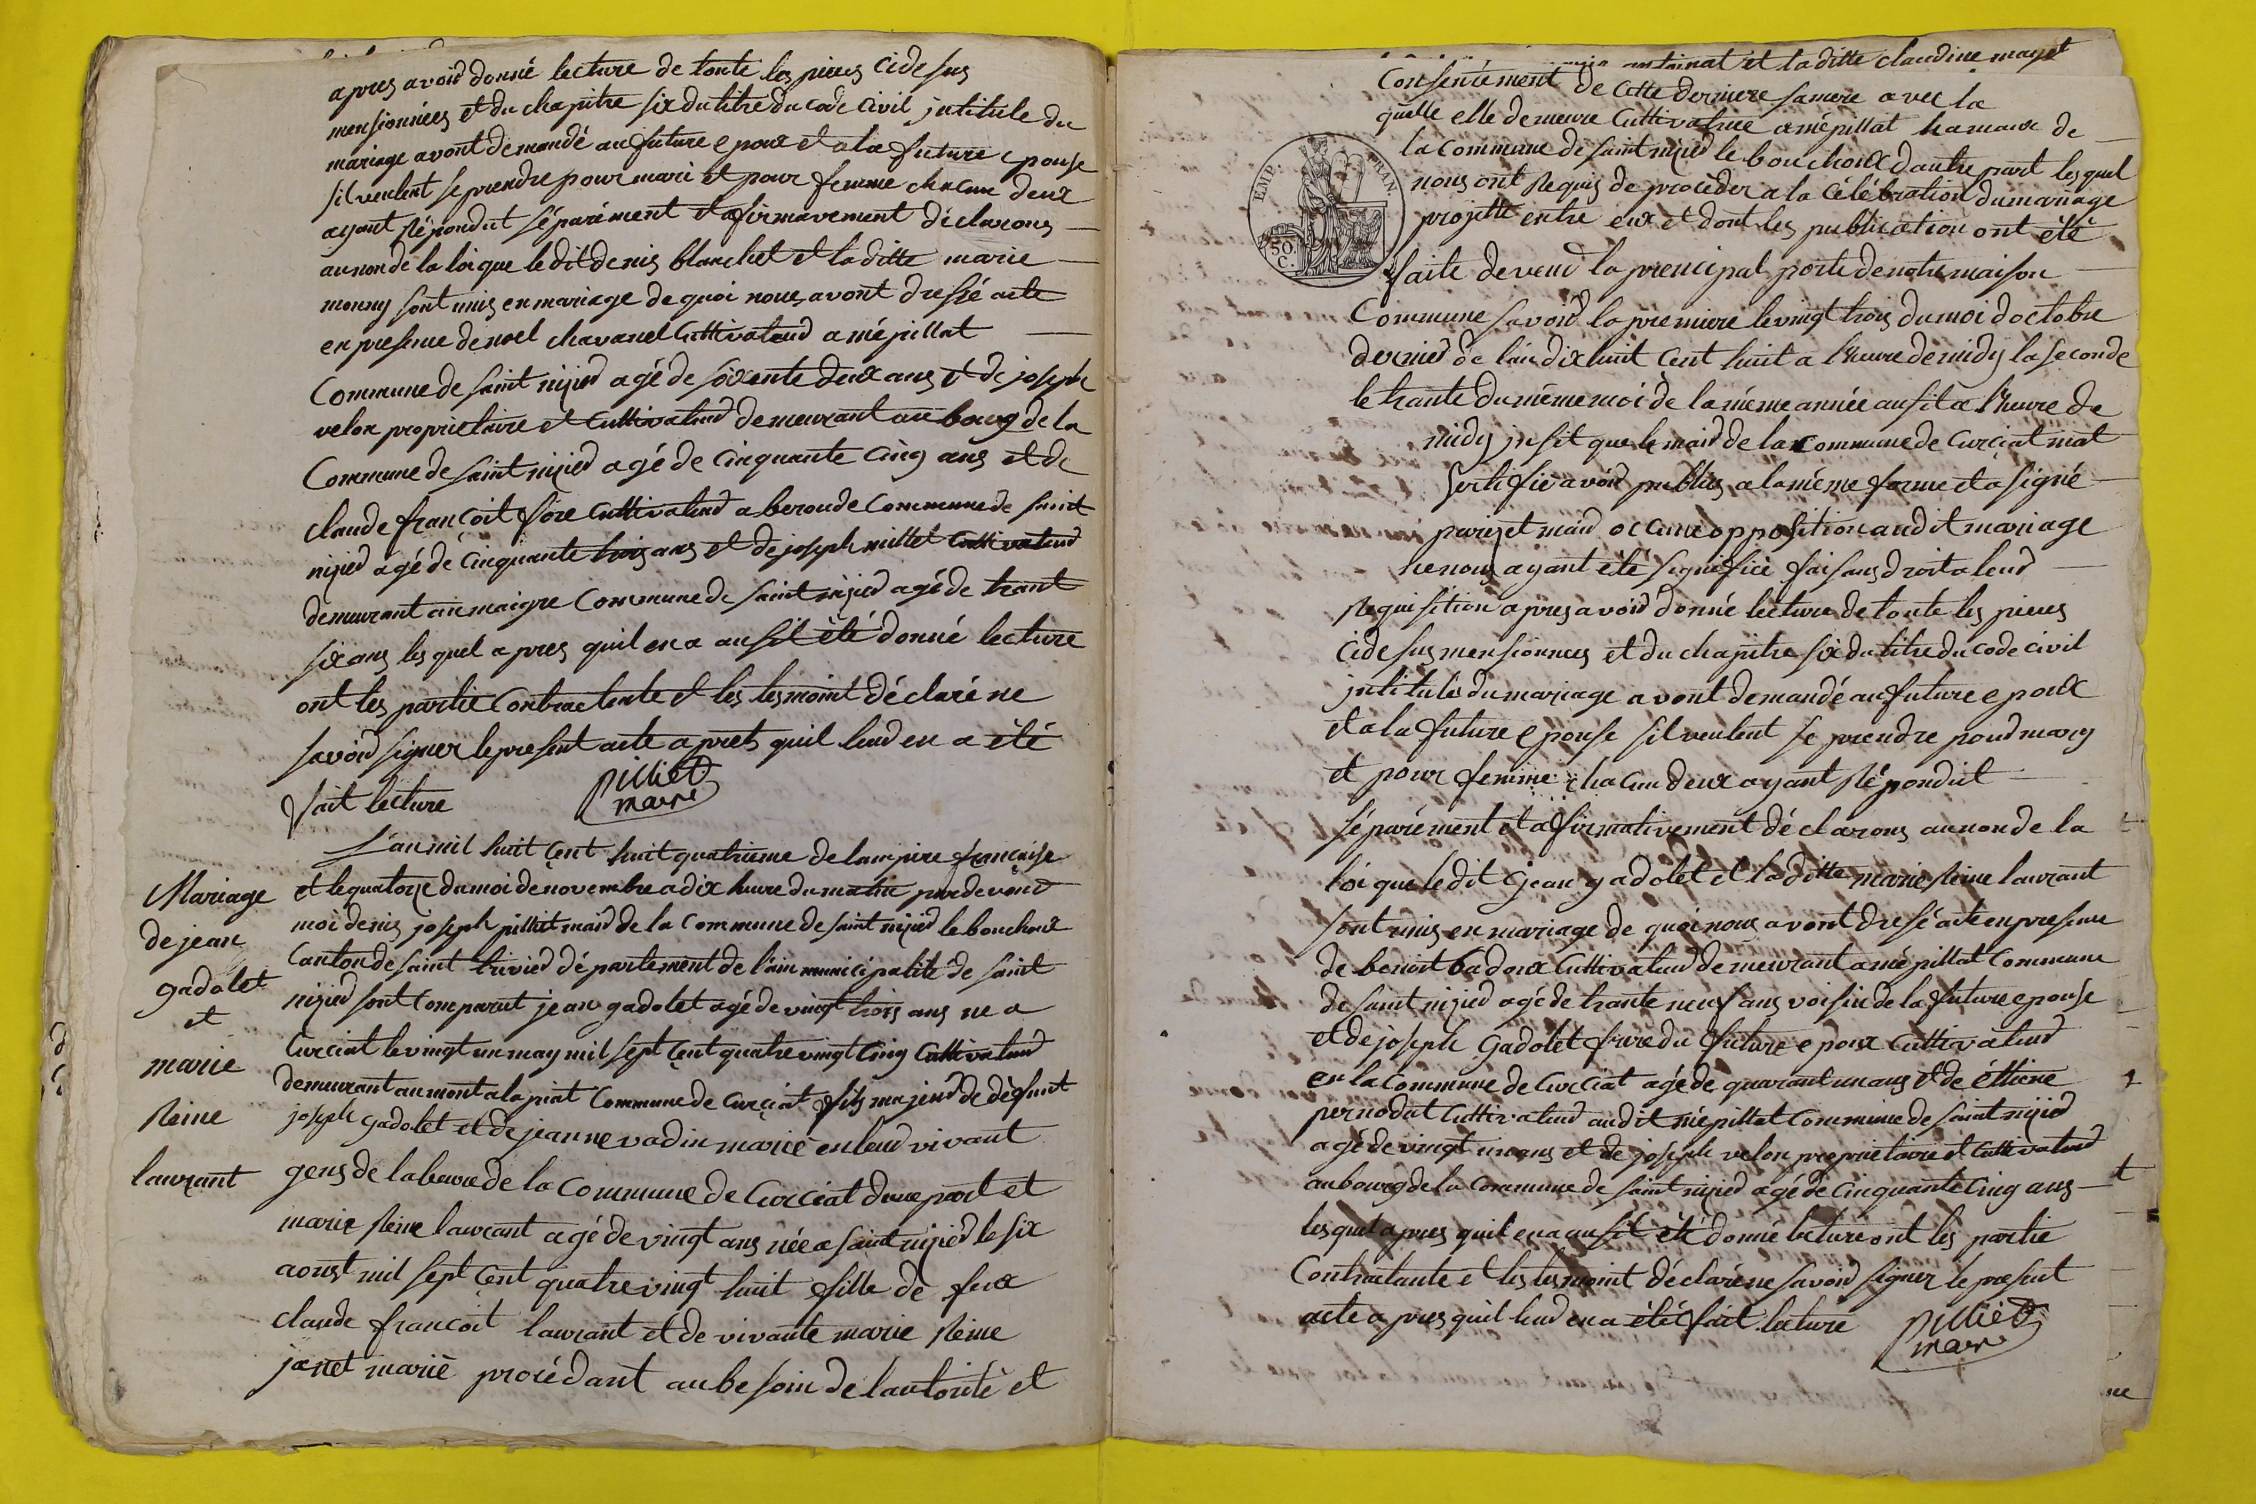 apres avoir donné lecture de toute les pieces cidesus
mensionnées et du chapitre six du titre du code civil jntitule du
mariage avont demandé au future epoux et a la future epouse
sil veulent se prendre pour mari et pour femme chacun deux
ayant répondut séparément et afirmavement déclarons
au non de la loi que le dit denis blanchet et la ditte marie
monny sont unis en mariage de quoi nous avont dressé acte
en presence de noel chavanel Cultivateur a mépillat
Commune de saint nizier agé de soixente deux ans et de joseph
velon proprietaire et Cultivateur demeurant au bourg de la
Commune de saint nizier agé de cinquante cinq ans et de
claude francoit fore Cultivateur a beroude Commune de saint
nizier agé de cinquante trois ans et de joseph millet Cultivateur
demeurant au maigre Commune de saint nizier agé de trant
six ans les quel apres quil en a ausit été donné lecture
ont les partie Contractente et les tesmoint déclaré ne
savoir signer le present acte aprets quil leur en a été
fait lecture
pilliet
maire
L'an mil huit cent huit quatrieme de lampire francaise
et le quatorze du moi de novembre a dix heure du matin pardevent
moi denis joseph pilliet mair de la Commune de saint nizier le bouchoux
Canton de saint trivier département de l'ain municipalité de saint
nizier sont Comparut jean gadolet agé de vingt trois ans ne a
Curciat le vingt un may mil sept cent quatre vingt cinq Cultivateur
demeurant au mont a la piat Commune de Curciat fils majeur de défunt
joseph gadolet et de jeanne vadin marié en leur vivant
gens de labeure de la Commune de Curciat dune part et
marie Reine laurant agé de vingt ans née a saint nizier le six
aoust mil sept cent quatre vingt huit fille de feux
claude francoit laurant et de vivante marie Reine
janet marié procédant au besoin de lautorité et
Mariage
de jean
gadolet
et
marie
Reine
laurant
et la ditte claudine mayet
Consentement de cette derniere sa mere avec la
quelle elle demeure Cultivatrice a mépillat hamaux de
la Commune de saint nizier le bouchoux dautre part lesquel
nous ont Requis de procéder a la célébration du mariage
projetté entre eux et dont les publication ont été
faite devent la prencipal porte de notre maison
Commune savoir la premiere le vingt trois du moi doctobre
dernier de lan dix huit cent huit a l'heure de midy la seconde
le trante du même moi de la même année ausit a l'heure de
midy jnsit que le mair de la Commune de Curciat mat
sertifié avoir publies a la même forme et a signé
parizet mair ocune opposition au dit mariage
ne nous ayant été signifiée faisans droit a leur
Requisition apres avoir donné lecture de toute les pieces
cidesus mensionnees et du chapitre six du titre du code civil
jntitulés du mariage avont demandé au future epoux
et a la future epouse sil veulent se prendre pour mary
et pour femme chacun deux ayant Répondut
séparément et afirmativement déclarons au non de la
loi que le dit jean gadolet et la ditte marie Reine laurant
sont unis en mariage de quoi nous avont dressé acte en presence
de benoit badoux Cultivateur demeurant a mépillat Commune
de saint nizier agé de trante neuf ans voisin de la future epouse
et de joseph gadolet frere du future epoux Cultivateur
en la Commune de Curciat agé de quarant un ans et de éttiene
pernodat Cultivateur au dit mépillat Commune de saint nizier
agé de vingt un ans et de joseph velon proprietaire et Cultivateur
au bourg de la Commune de saint nizier agé de cinquante cinq ans
les quel apres quil en a ausit été donné lecture ont les partie
Contractante et les tesmoint déclaré ne savoir signer le present
acte apres quil leur en a été fait lecture
pilliet
maire
EMP. FRAN.
50
C.